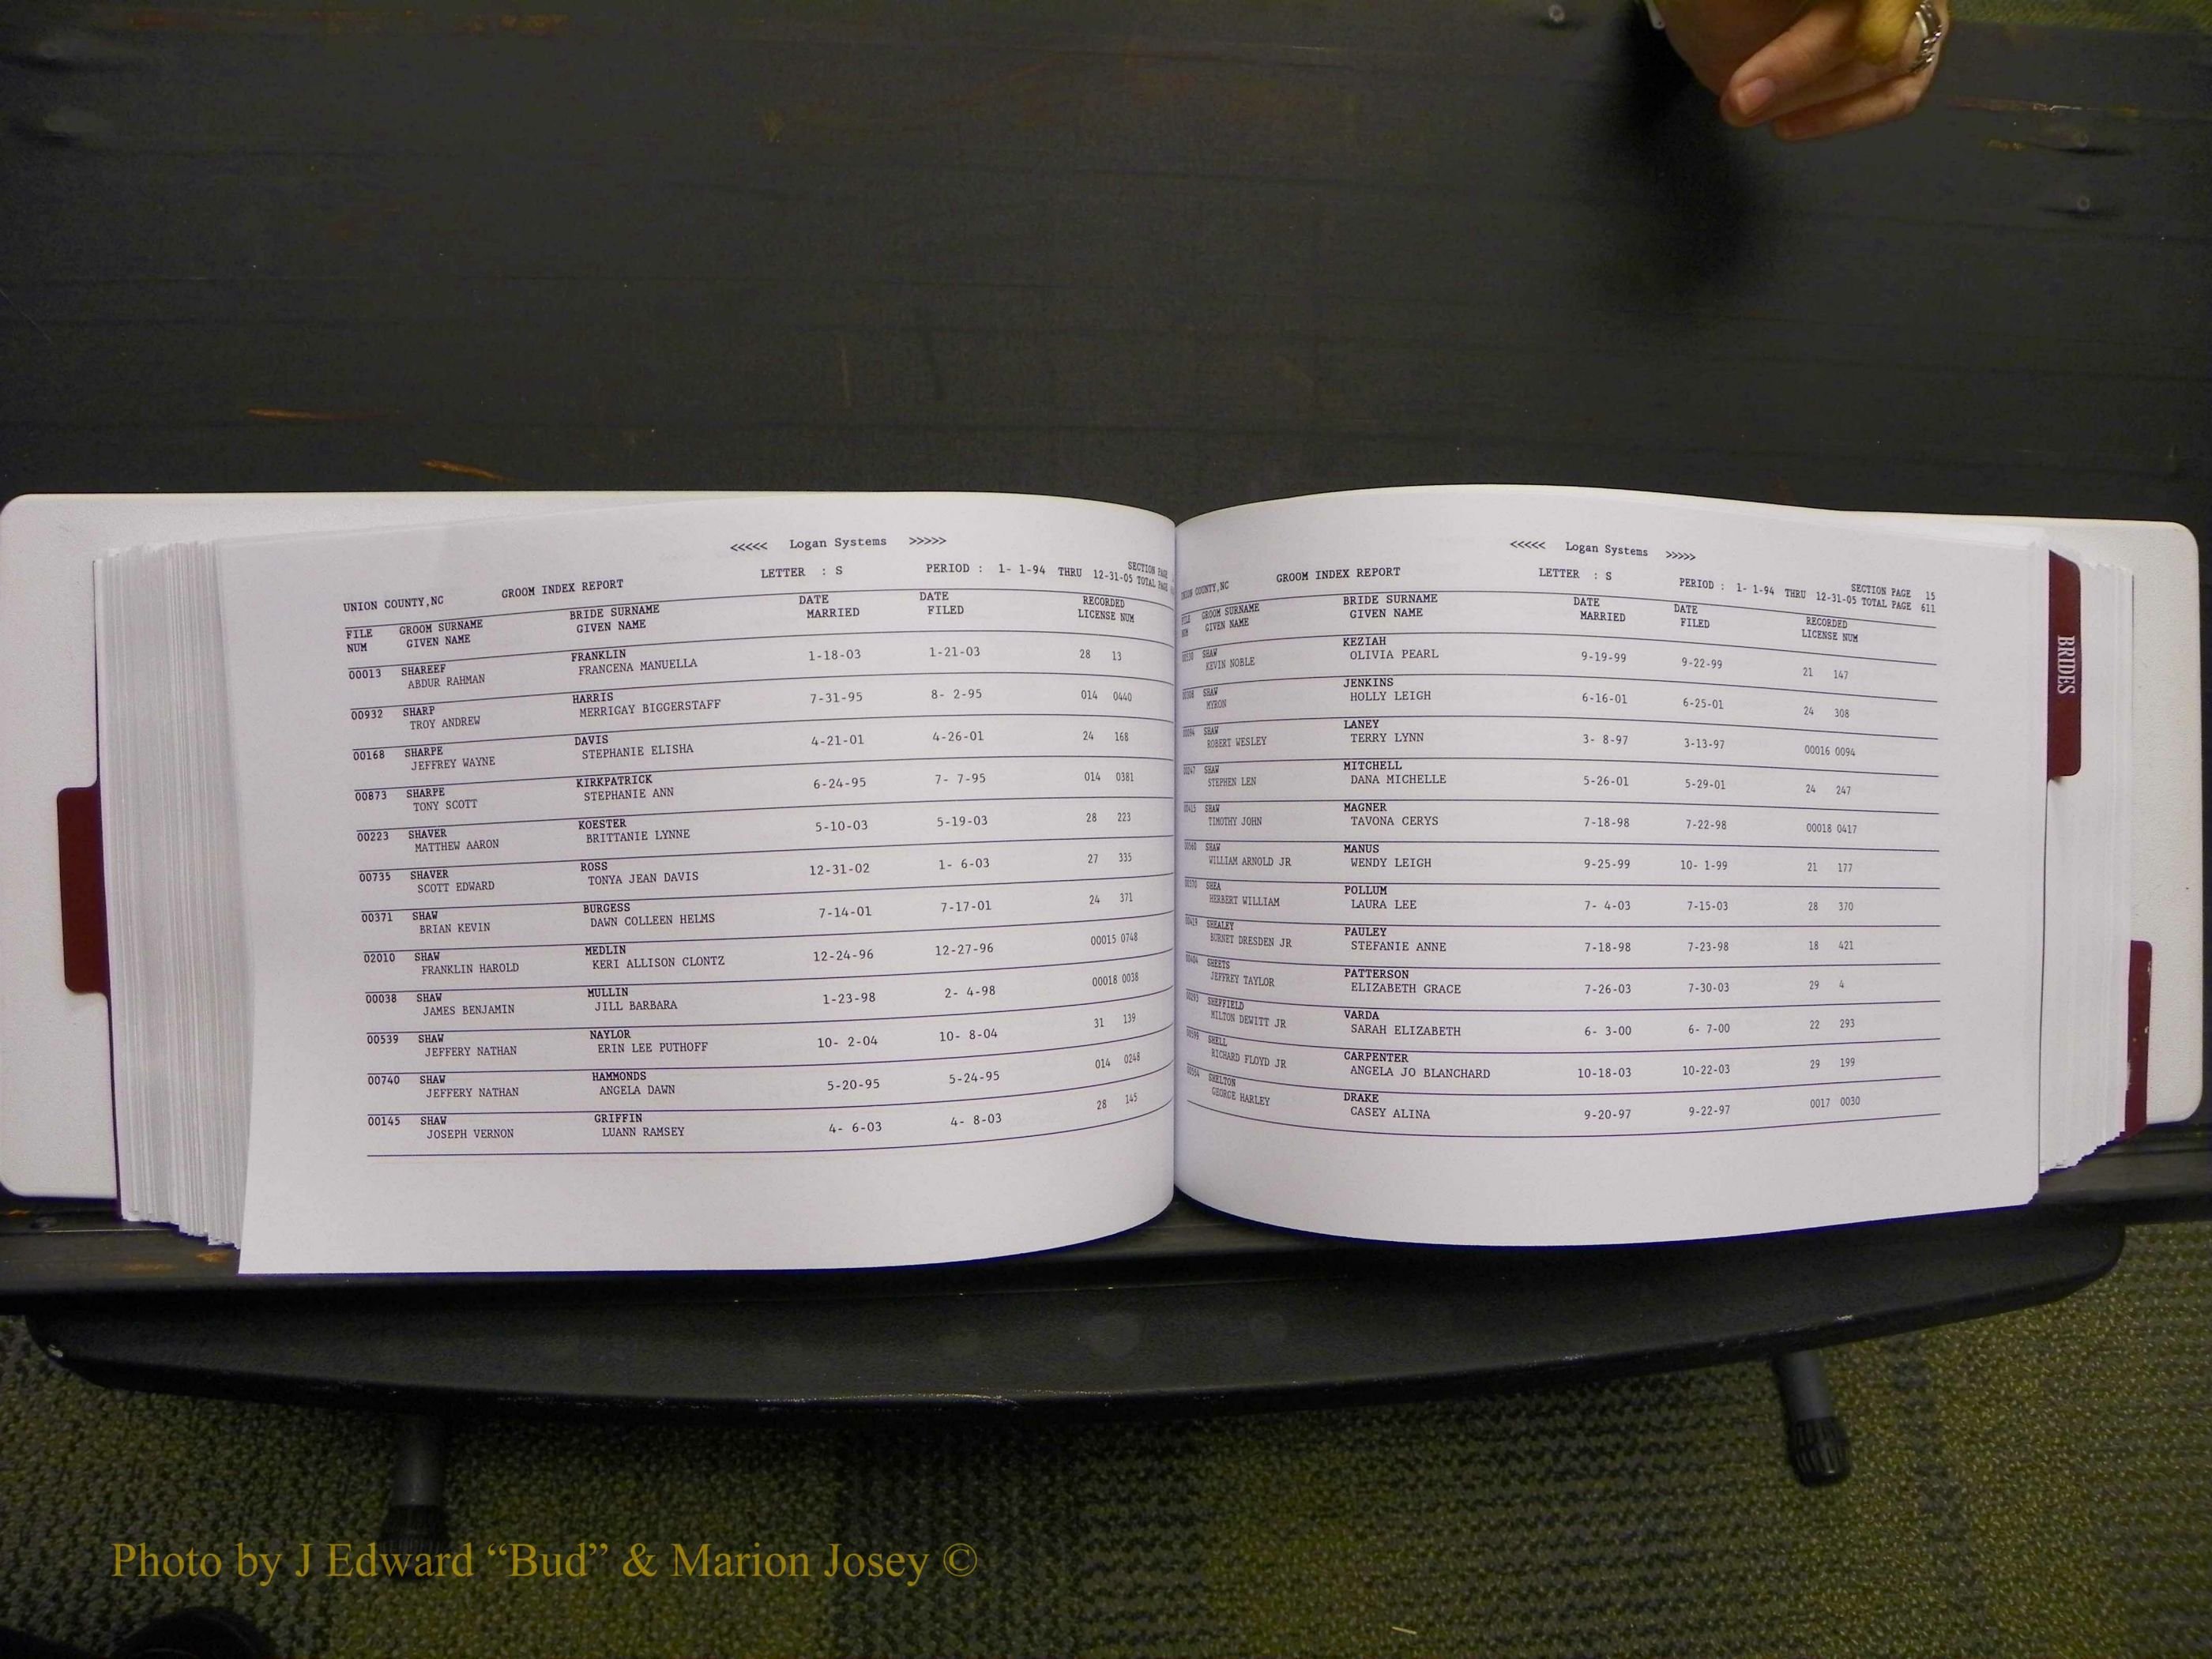 <<<<< Logan Systems >>>>>
UNION COUNTY,NC GROOM INDEX REPORT LETTER : S PERIOD : 1- 1-94 THRU 12-31-05 SECTION PAGE
TOTAL PAGE
FILE GROOM SURNAME BRIDE SURNAME DATE DATE RECORDED
NUM GIVEN NAME GIVEN NAME MARRIED FILED LICENSE NUM
00013 SHAREEF FRANKLIN 1-18-03 1-21-03 28 13
ABDUR RAHMAN FRANCENA MANUELLA
00932 SHARP HARRIS 7-31-95 8- 2-95 014 0440
TROY ANDREW MERRIGAY BIGGERSTAFF
00168 SHARPE DAVIS 4-21-01 4-26-01 24 168
JEFFREY WAYNE STEPHANIE ELISHA
00873 SHARPE KIRKPATRICK 6-24-95 7- 7-95 014 0381
TONY SCOTT STEPHANIE ANN
00223 SHAVER KOESTER 5-10-03 5-19-03 28 223
MATTHEW AARON BRITTANIE LYNNE
00735 SHAVER ROSS 12-31-02 1- 6-03 27 335
SCOTT EDWARD TONYA JEAN DAVIS
00371 SHAW BURGESS 7-14-01 7-17-01 24 371
BRIAN KEVIN DAWN COLLEEN HELMS
02010 SHAW MEDLIN 12-24-96 12-27-96 00015 0748
FRANKLIN HAROLD KERI ALLISON CLONTZ
00038 SHAW MULLIN 1-23-98 2- 4-98 00018 0038
JAMES BENJAMIN JILL BARBARA
00539 SHAW NAYLOR 10- 2-04 10- 8-04 31 139
JEFFERY NATHAN ERIN LEE PUTHOFF
00740 SHAW HAMMONDS 5-20-95 5-24-95 014 0248
JEFFERY NATHAN ANGELA DAWN
00145 SHAW GRIFFIN 4- 6-03 4- 8-03 28 145
JOSEPH VERNON LUANN RAMSEY
<<<<< Logan Systems >>>>>
UNION COUNTY,NC GROOM INDEX REPORT LETTER : S PERIOD : 1- 1-94 THRU 12-31-05 SECTION PAGE 15
TOTAL PAGE 611
FILE GROOM SURNAME BRIDE SURNAME DATE DATE RECORDED
NUM GIVEN NAME GIVEN NAME MARRIED FILED LICENSE NUM
SHAW KEZIAH 9-19-99 9-22-99 21 147
KEVIN NOBLE OLIVIA PEARL
SHAW JENKINS 6-16-01 6-25-01 24 308
MYRON HOLLY LEIGH
SHAW LANEY 3- 8-97 3-13-97 00016 0094
ROBERT WESLEY TERRY LYNN
SHAW MITCHELL 5-26-01 5-29-01 24 247
STEPHEN LEN DANA MICHELLE
SHAW MAGNER 7-18-98 7-22-98 00018 0417
TIMOTHY JOHN TAVONA CERYS
SHAW MANUS 9-25-99 10- 1-99 21 177
WILLIAM ARNOLD JR WENDY LEIGH
SHEA POLLUM 7- 4-03 7-15-03 28 370
HERBERT WILLIAM LAURA LEE
SHEALEY PAULEY 7-18-98 7-23-98 18 421
BURNET DRESDEN JR STEFANIE ANNE
SHEETS PATTERSON 7-26-03 7-30-03 29 4
JEFFREY TAYLOR ELIZABETH GRACE
SHEFFIELD VARDA 6- 3-00 6- 7-00 22 293
MILTON DEWITT JR SARAH ELIZABETH
SHELL CARPENTER 10-18-03 10-22-03 29 199
RICHARD FLOYD JR ANGELA JO BLANCHARD
SHELTON DRAKE 9-20-97 9-22-97 0017 0030
GEORGE HARLEY CASEY ALINA
BRIDES
Photo by J Edward “Bud” & Marion Josey ©